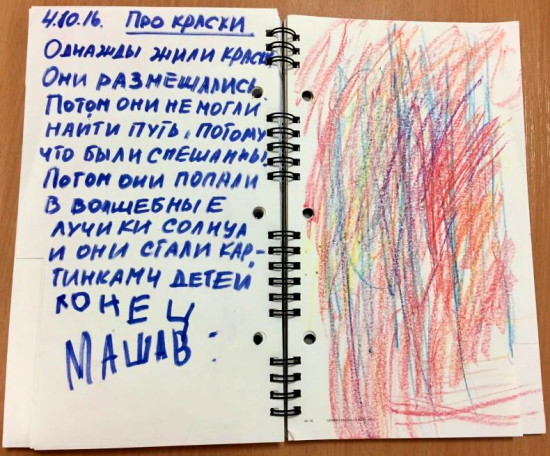 4.10.16. Про краски
Однажды жили краски
Они размешались
Потом они не могли
найти путь, потому
что были смешанны
Потом они попали
в волшебные
лучики солнца
и они стали кар-
тинками детей
Конец
МАШАВ: